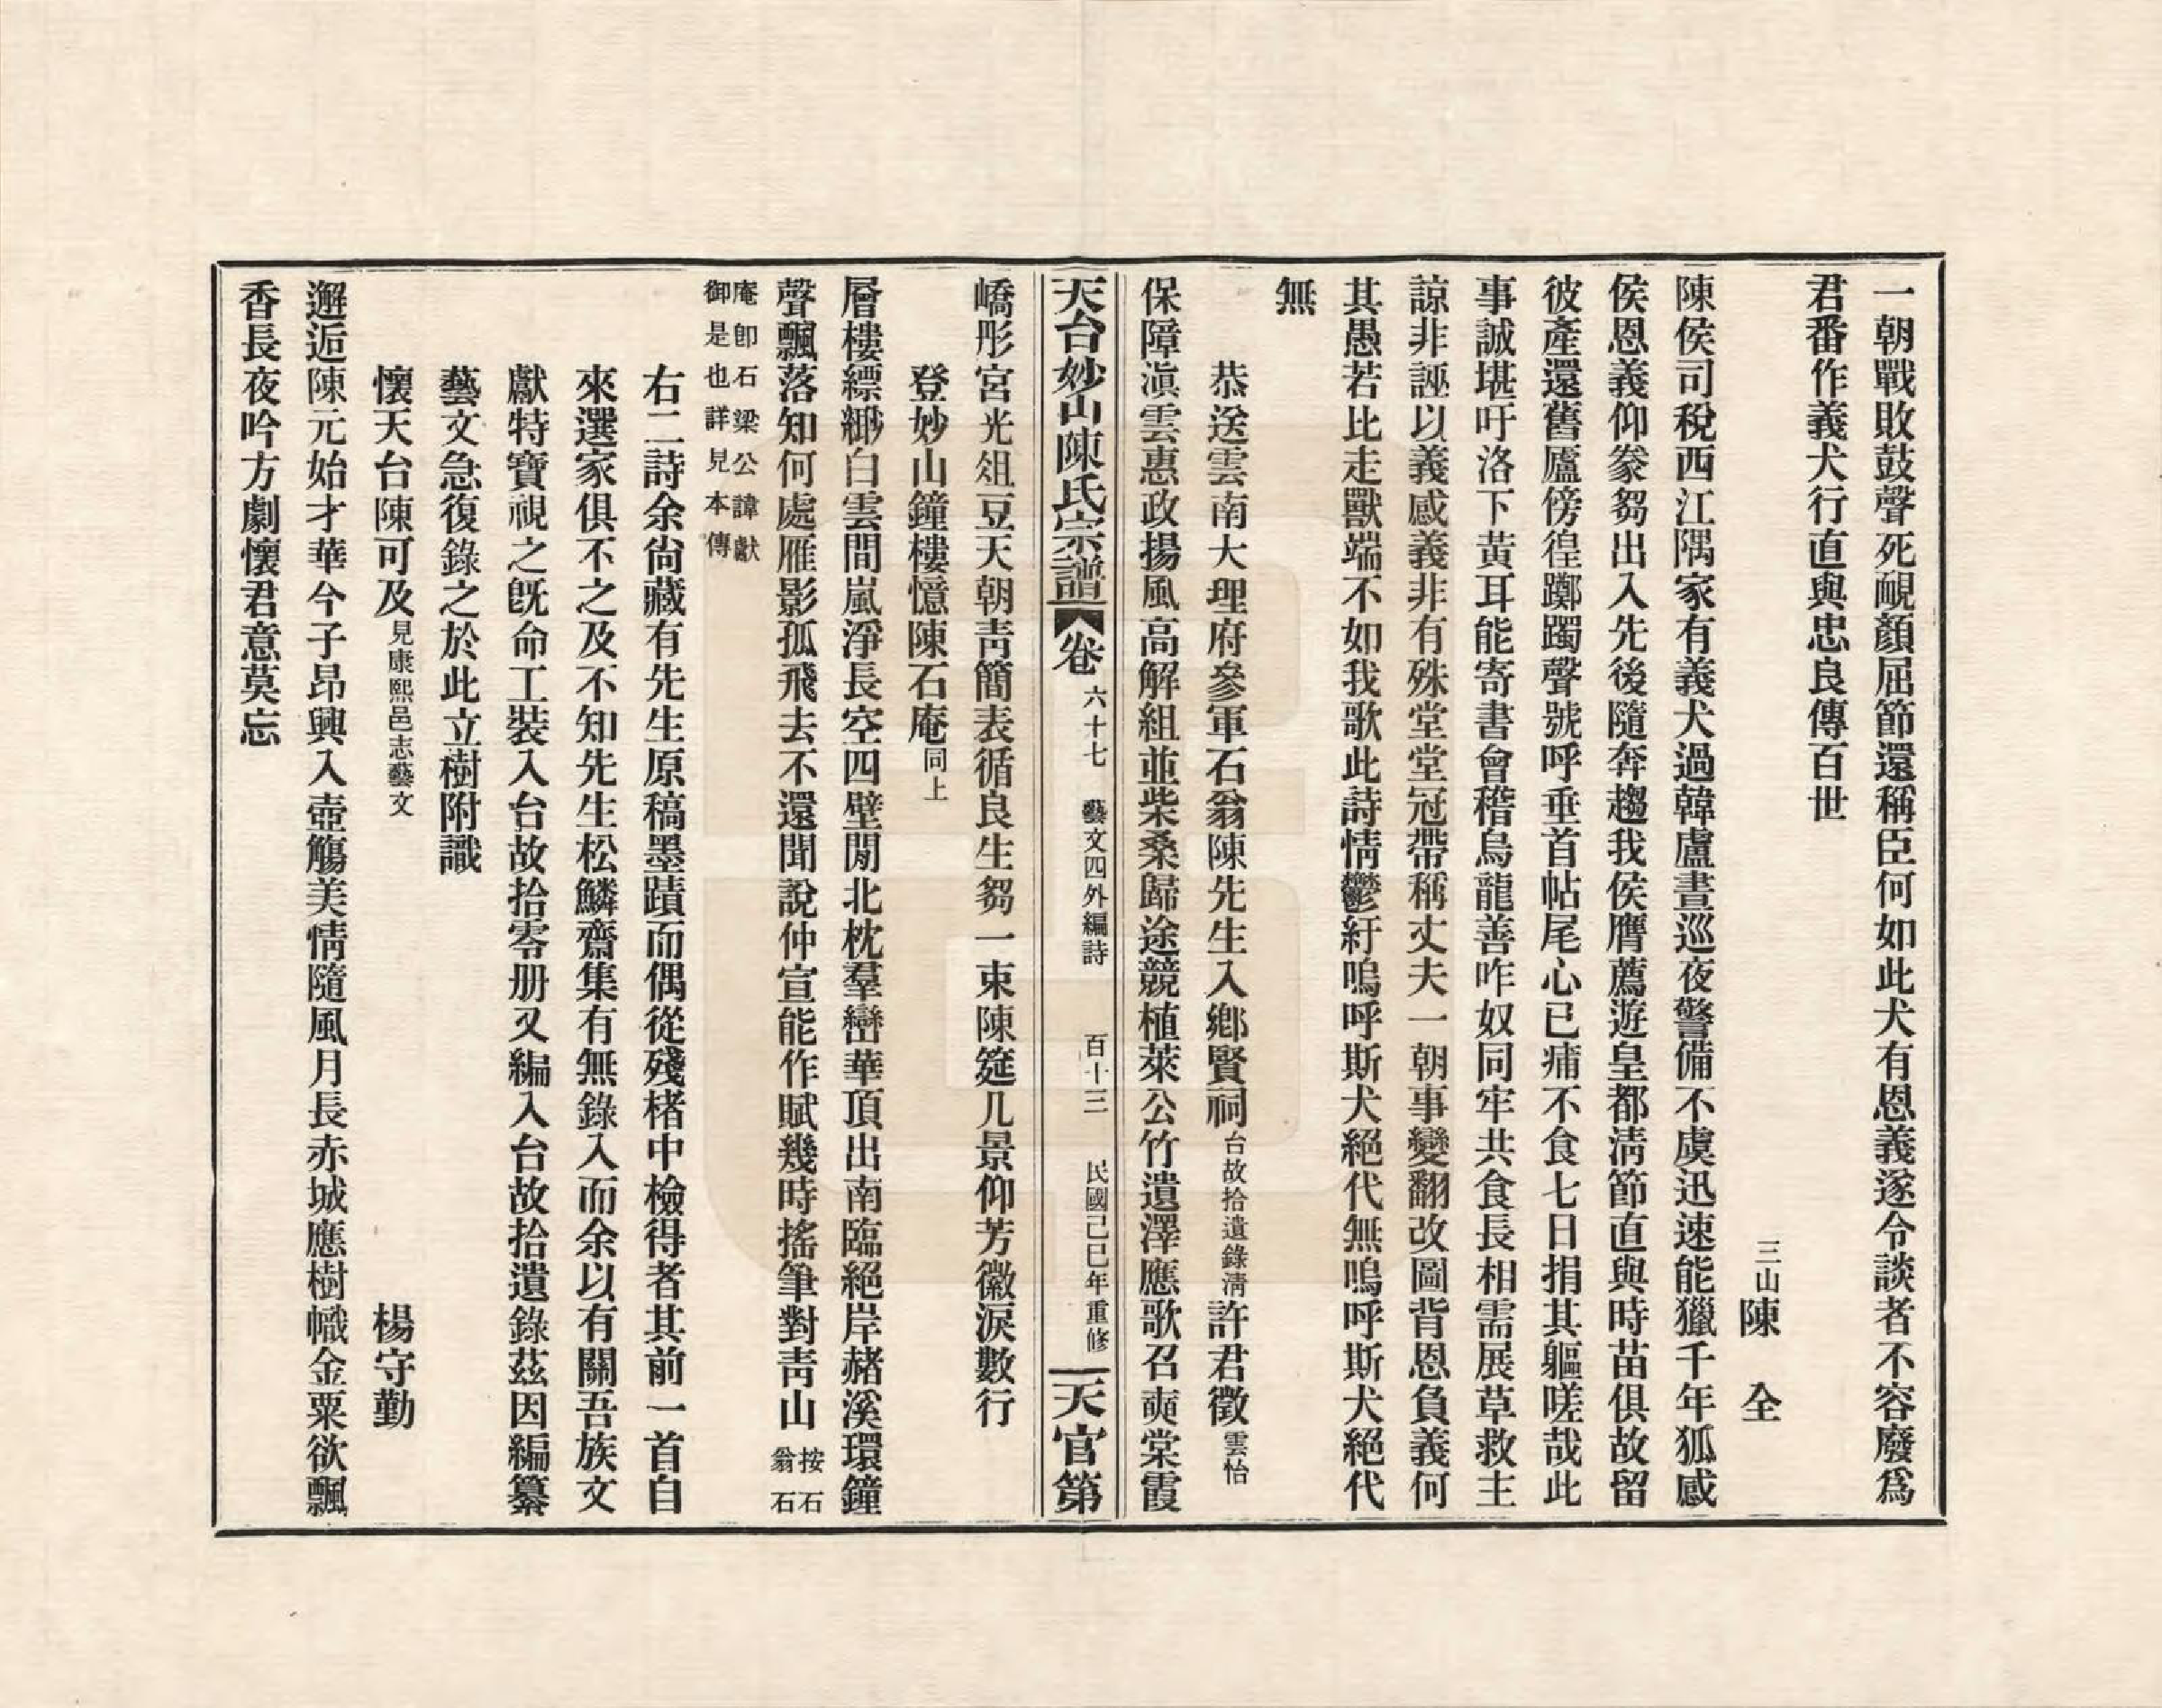 一朝戰敗鼓聲死靦顏屈節還稱臣何如此犬有恩義遂令談者不容廢爲
君番作義犬行直與忠良傳百世
三山陳 全
陳侯司稅西江隅家有義犬過韓盧晝巡夜警備不虞迅速能獵千年狐感
侯恩義仰豢芻出入先後隨奔趨我侯膺薦遊皇都淸節直與時苗俱故留
彼產還舊廬傍徨躑躅聲號呼垂首帖尾心已痡不食七日捐其軀嗟哉此
事誠堪吁洛下黄耳能寄書會稽烏龍善咋奴同牢共食長相需展草救主
諒非誣以義感義非有殊堂堂冠帶稱丈夫一朝事變翻改圖背恩負義何
其愚若比走獸端不如我歌此詩情鬱紆嗚呼斯犬絕代無嗚呼斯犬絕代
無
恭送雲南大理府參軍石翁陳先生入鄉賢祠台故拾遺錄淸許君徵雲怡
保障滇雲惠政揚風高解組並柴桑歸途競植萊公竹遺澤應歌召奭棠霞
天台妙山陳氏宗譜 卷 六十七 藝文四外編詩 百十三 民國己巳年重修 天官第
嶠彤宮光俎豆天朝靑簡表循良生芻一束陳筵几景仰芳徽淚數行
登妙山鐘樓憶陳石庵同上
層樓縹緲白雲間嵐淨長空四壁閒北枕羣巒華頂出南臨絕岸赭溪環鐘
聲飄落知何處雁影孤飛去不還聞說仲宣能作賦幾時搖筆對靑山按石翁石
庵卽石梁公諱獻御是也詳見本傳
右二詩余尙藏有先生原稿墨蹟而偶從殘楮中檢得者其前一首自
來選家俱不之及不知先生松鱗齋集有無錄入而余以有關吾族文
獻特寶視之旣命工裝入台故拾零册又編入台故拾遺錄茲因編纂
藝文急復錄之於此立樹附識
懷天台陳可及見康熙邑志藝文 楊守勤
邂逅陳元始才華今子昂興入壺觴美情隨風月長赤城應樹幟金粟欲飄
香長夜吟方劇懷君意莫忘